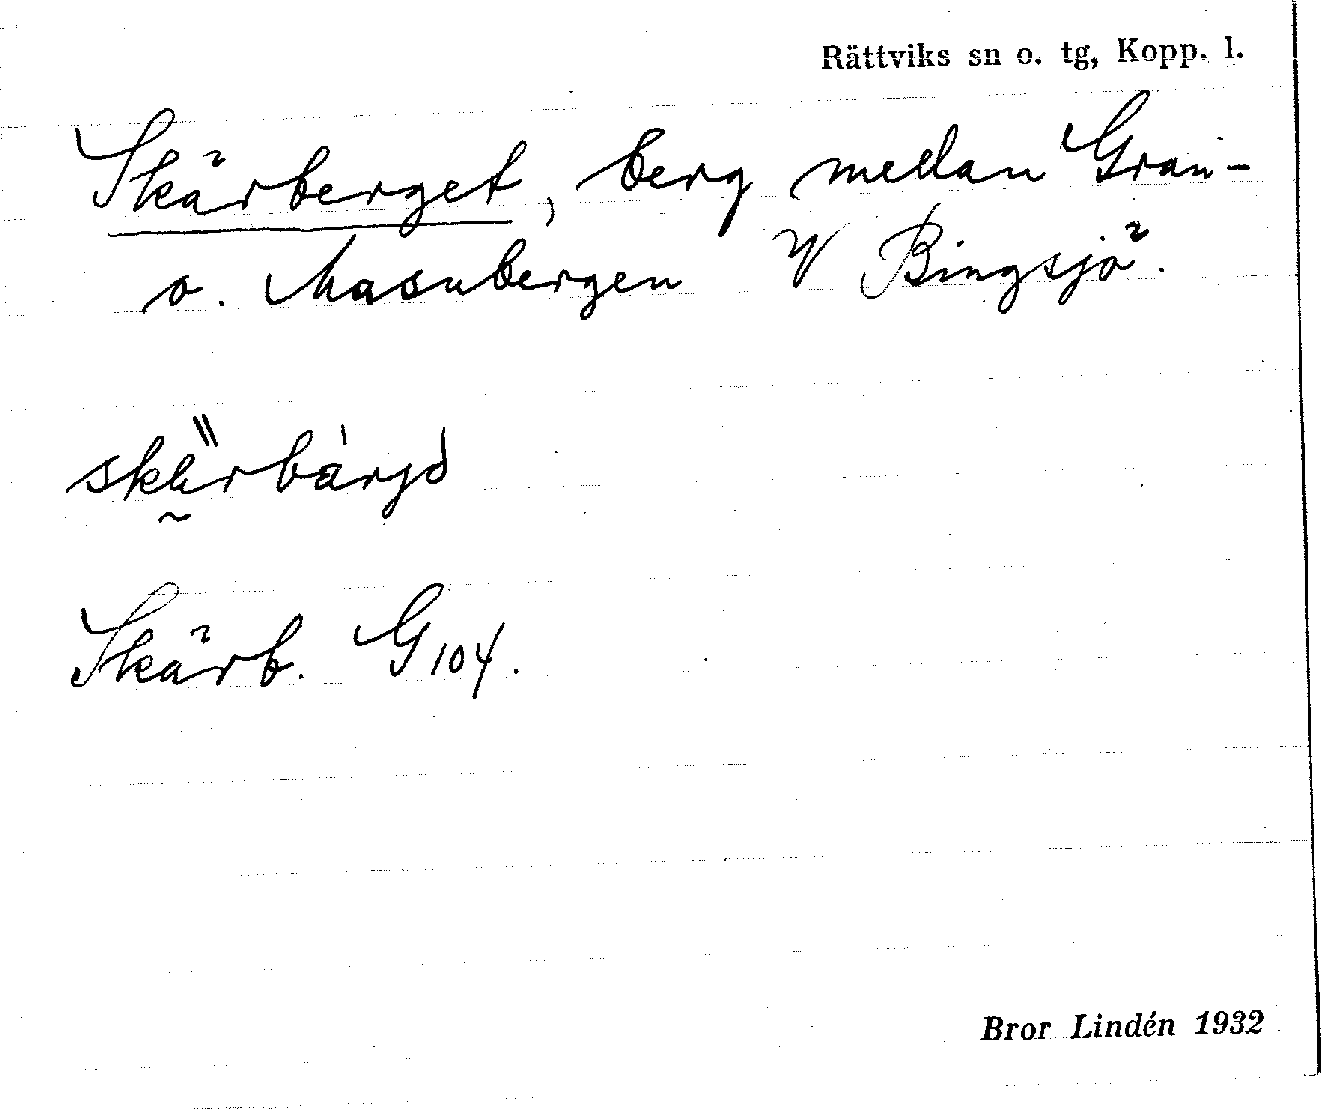 Rättviks sn o. tg, Kopp. l.
Skärberget, berg mellan Gran-
o. Masubergen V Bingsjö.
skärbärjd
Skärb. G 104.
Bror Lindén 1932